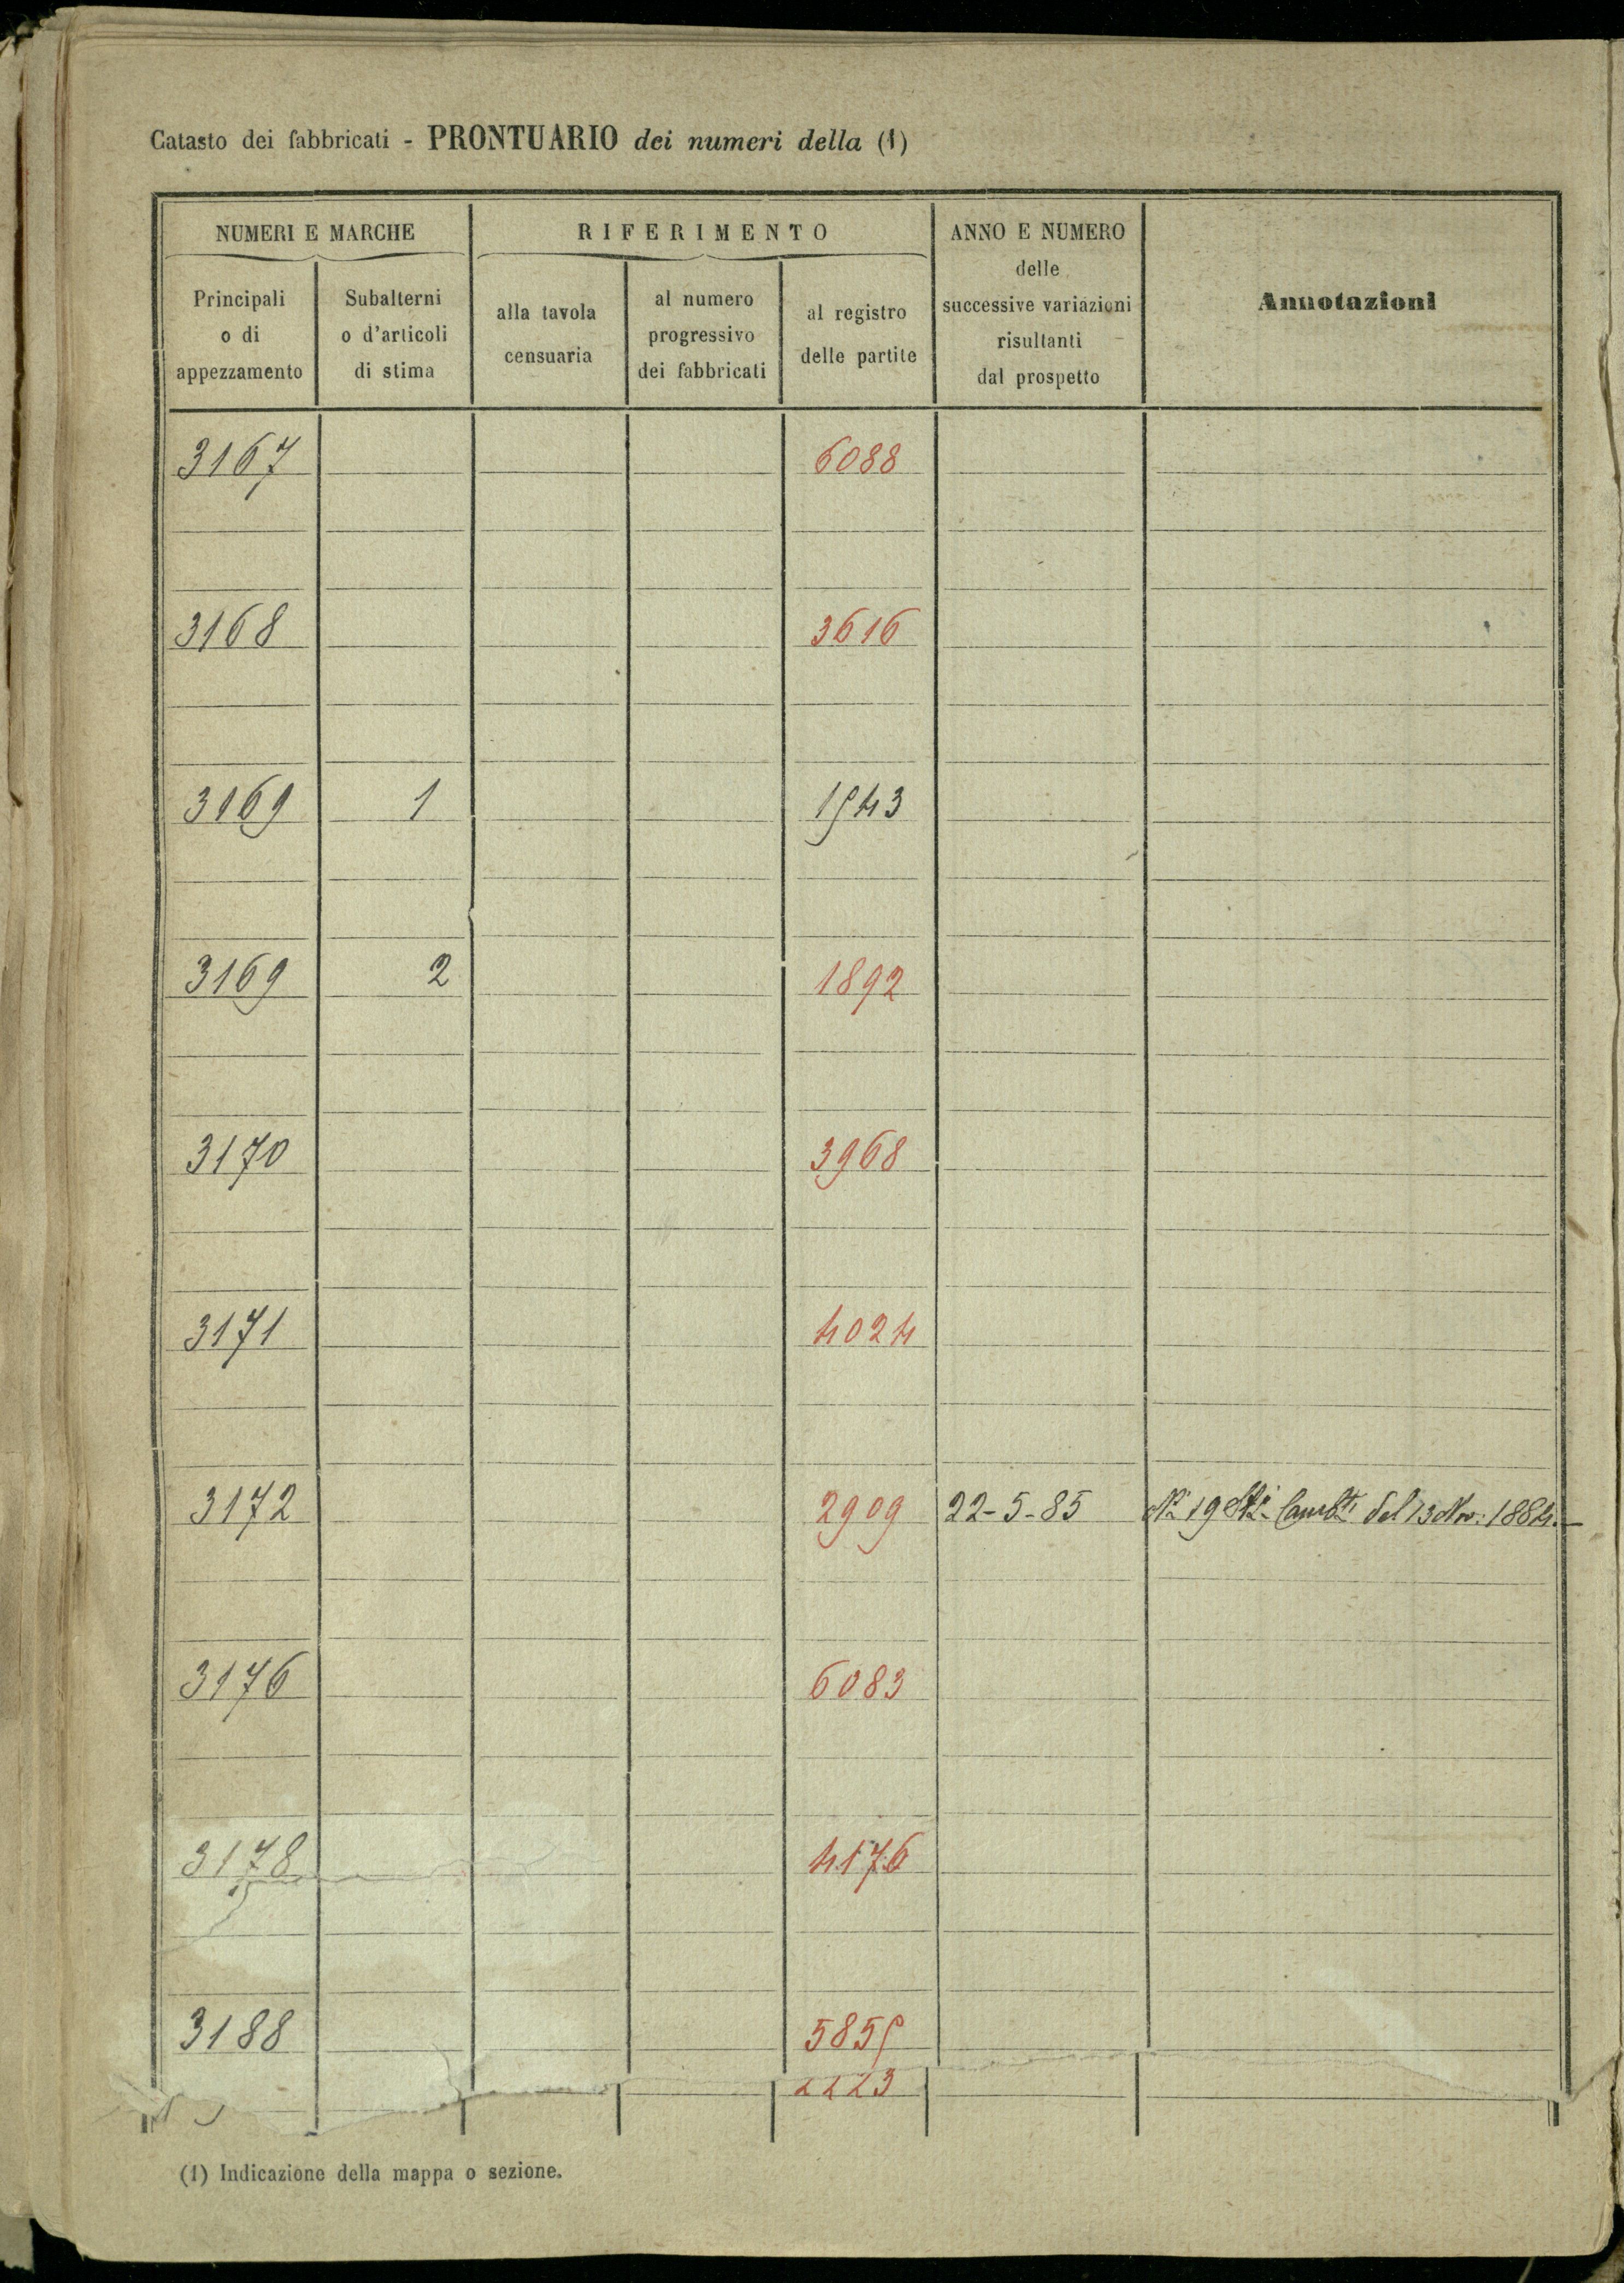 Catasto dei fabbricati - PRONTUARIO dei numeri della (1)
NUMERI E MARCHE RIFERIMENTO ANNO E NUMERO delle successive variazioni risultanti dal prospetto Annotazioni
Principali o di appezzamento Subalterni o d'articoli di stima alla tavola censuaria al numero progressivo dei fabbricati al registro delle partite
3167 6088
3168 3616
3169 1 1543
3169 2 1892
3170 3968
3171 4024
3172 2909 22-5-85 N° 19 del 13 Nov: 1884.
3176 6083
3178 4176
3188 5855
2223
(1) Indicazione della mappa o sezione.